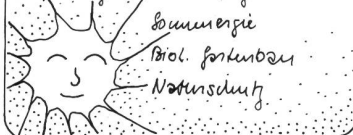 Sonnenergie
Biol. Gartenbau
Naturschutz